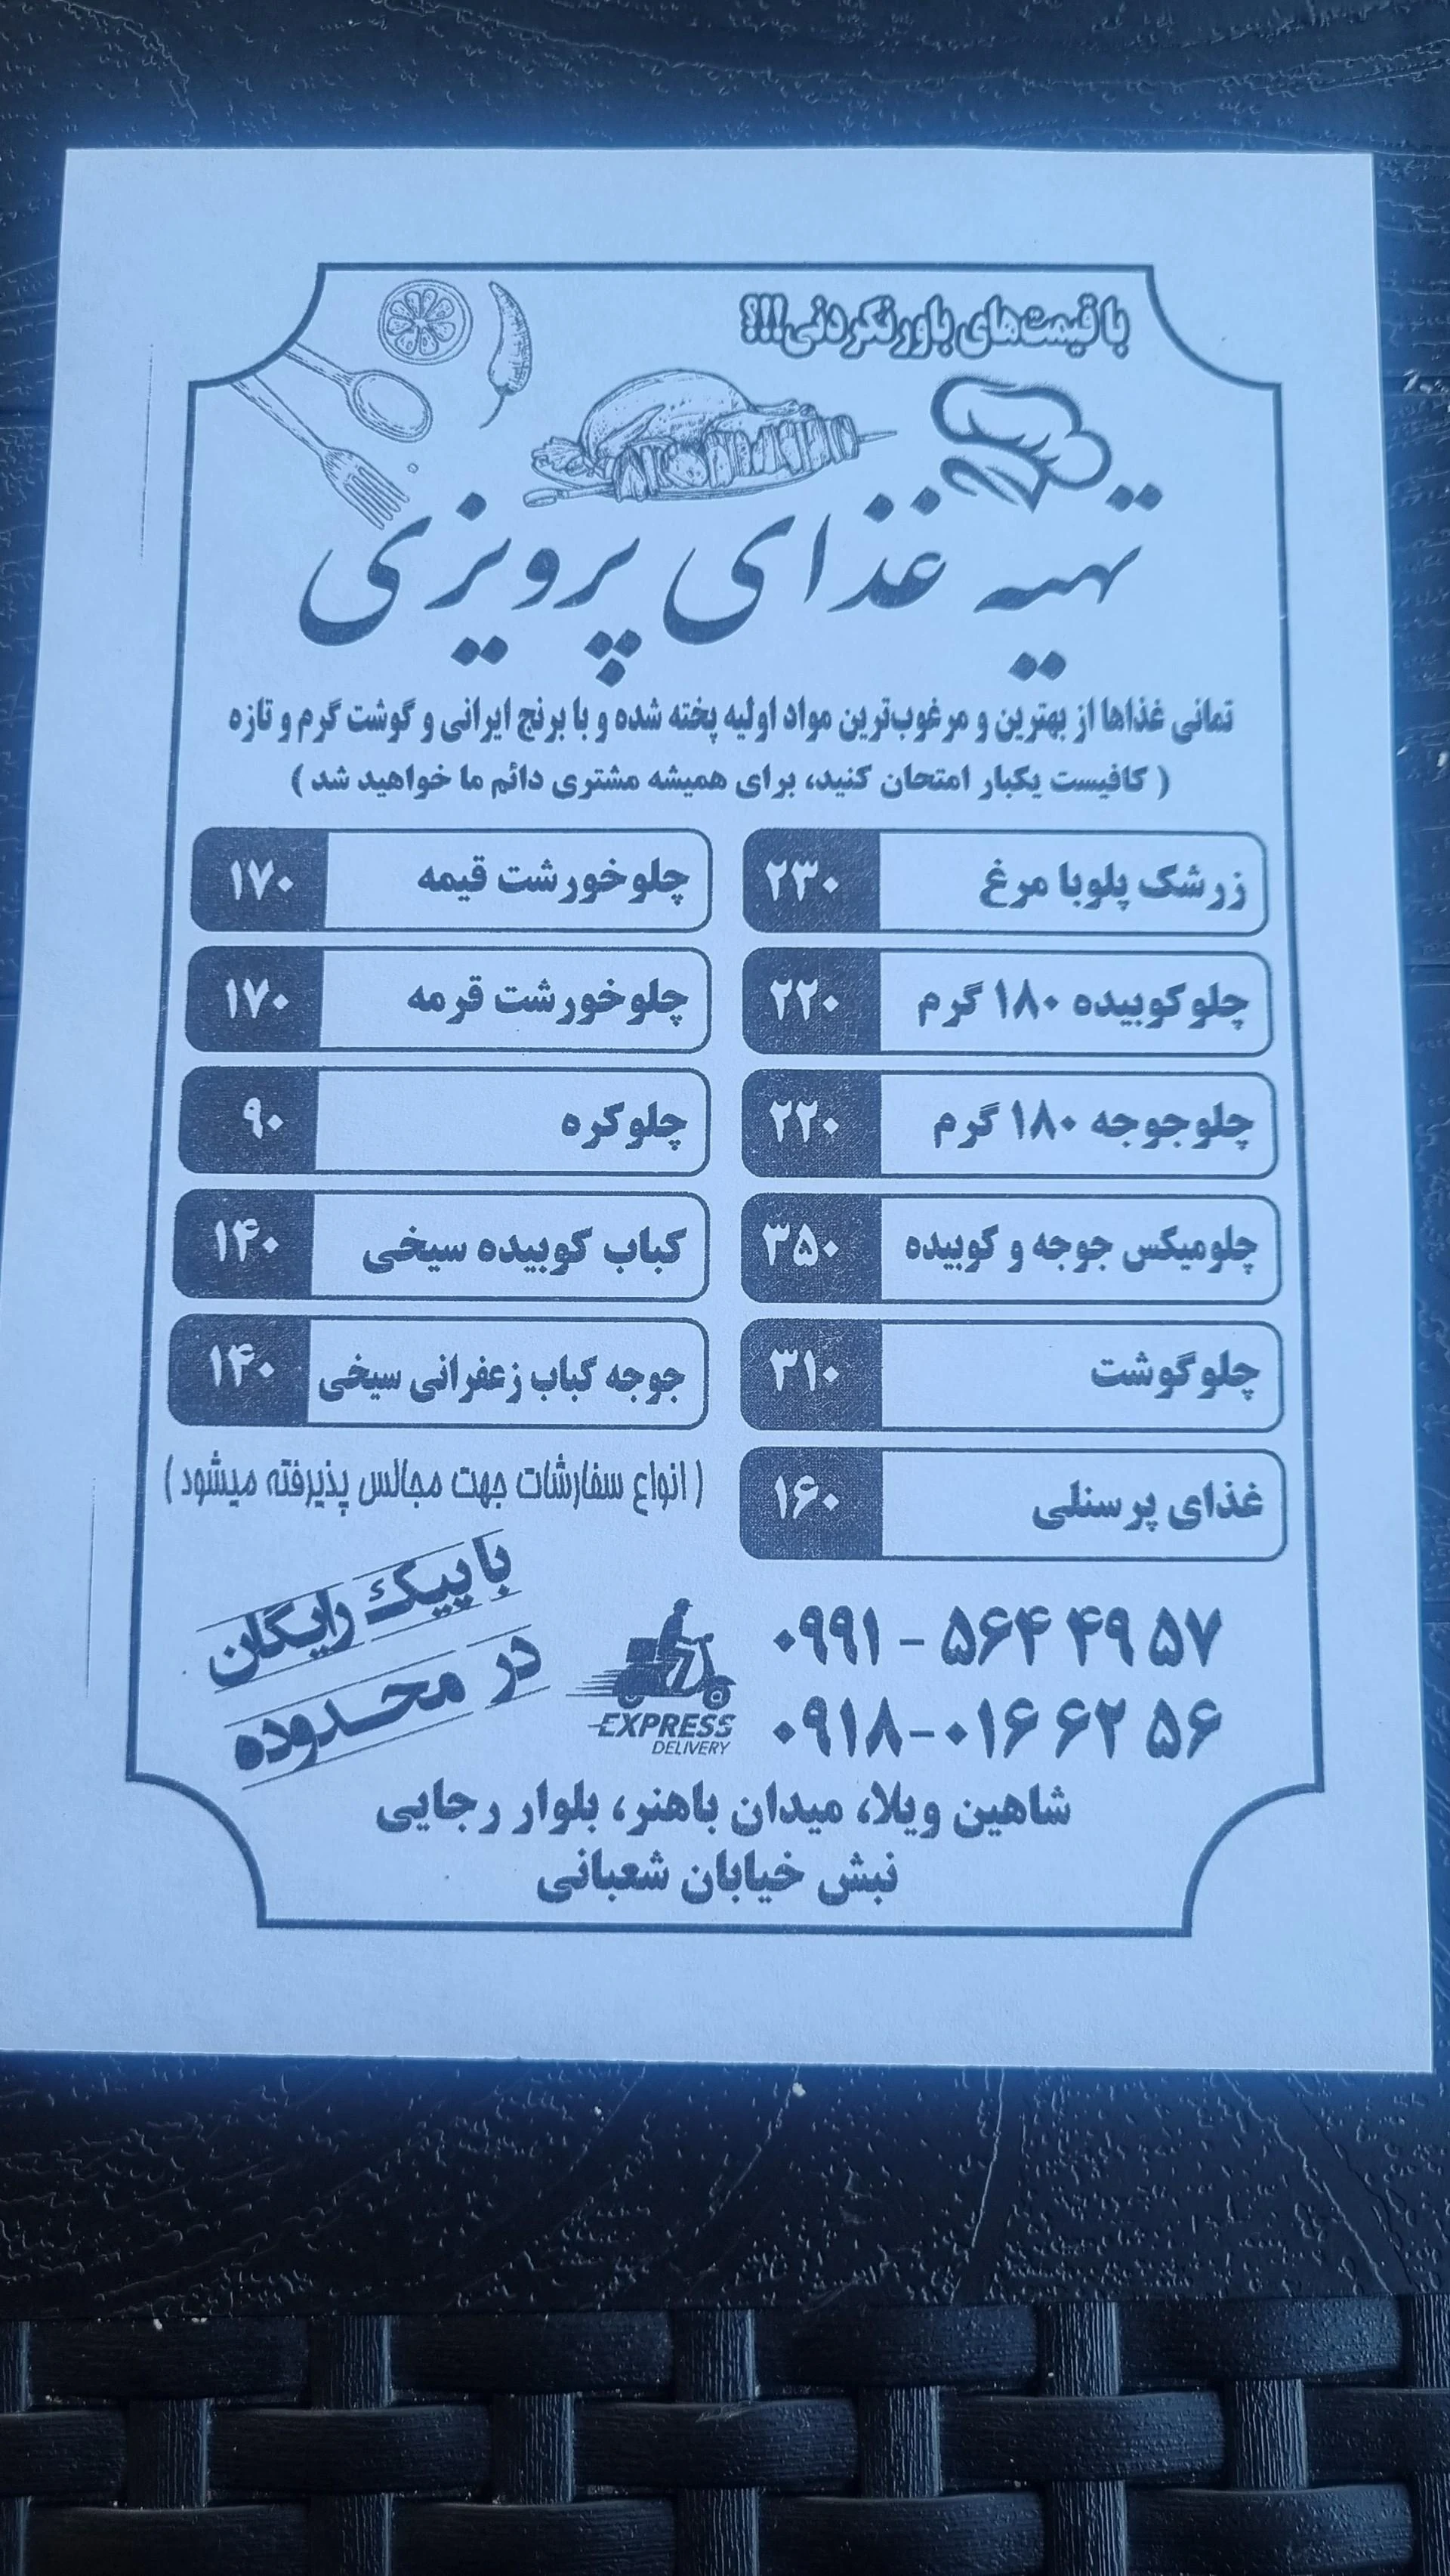 با قیمت‌های باورنکردنی!!!؟
تهیه غذای پرویزی
تمانی غذاها از بهترین و مرغوب‌ترین مواد اولیه پخته شده و با برنج ایرانی و گوشت گرم و تازه
( کافیست یکبار امتحان کنید، برای همیشه مشتری دائم ما خواهید شد )
زرشک پلوبا مرغ ۲۳۰
چلوکوبیده ۱۸۰ گرم ۲۲۰
چلوجوجه ۱۸۰ گرم ۲۲۰
چلومیکس جوجه و کوبیده ۳۵۰
چلوگوشت ۳۱۰
غذای پرسنلی ۱۶۰
چلوخورشت قیمه ۱۷۰
چلوخورشت قرمه ۱۷۰
چلوکره ۹۰
کباب کوبیده سیخی ۱۴۰
جوجه کباب زعفرانی سیخی ۱۴۰
( انواع سفارشات جهت مجالس پذیرفته میشود )
۰۹۹۱ - ۵۶۴ ۴۹ ۵۷
۰۹۱۸-۰۱۶ ۶۲ ۵۶
EXPRESS
DELIVERY
با پیک رایگان
در محدوده
شاهین ویلا، میدان باهنر، بلوار رجایی
نبش خیابان شعبانی